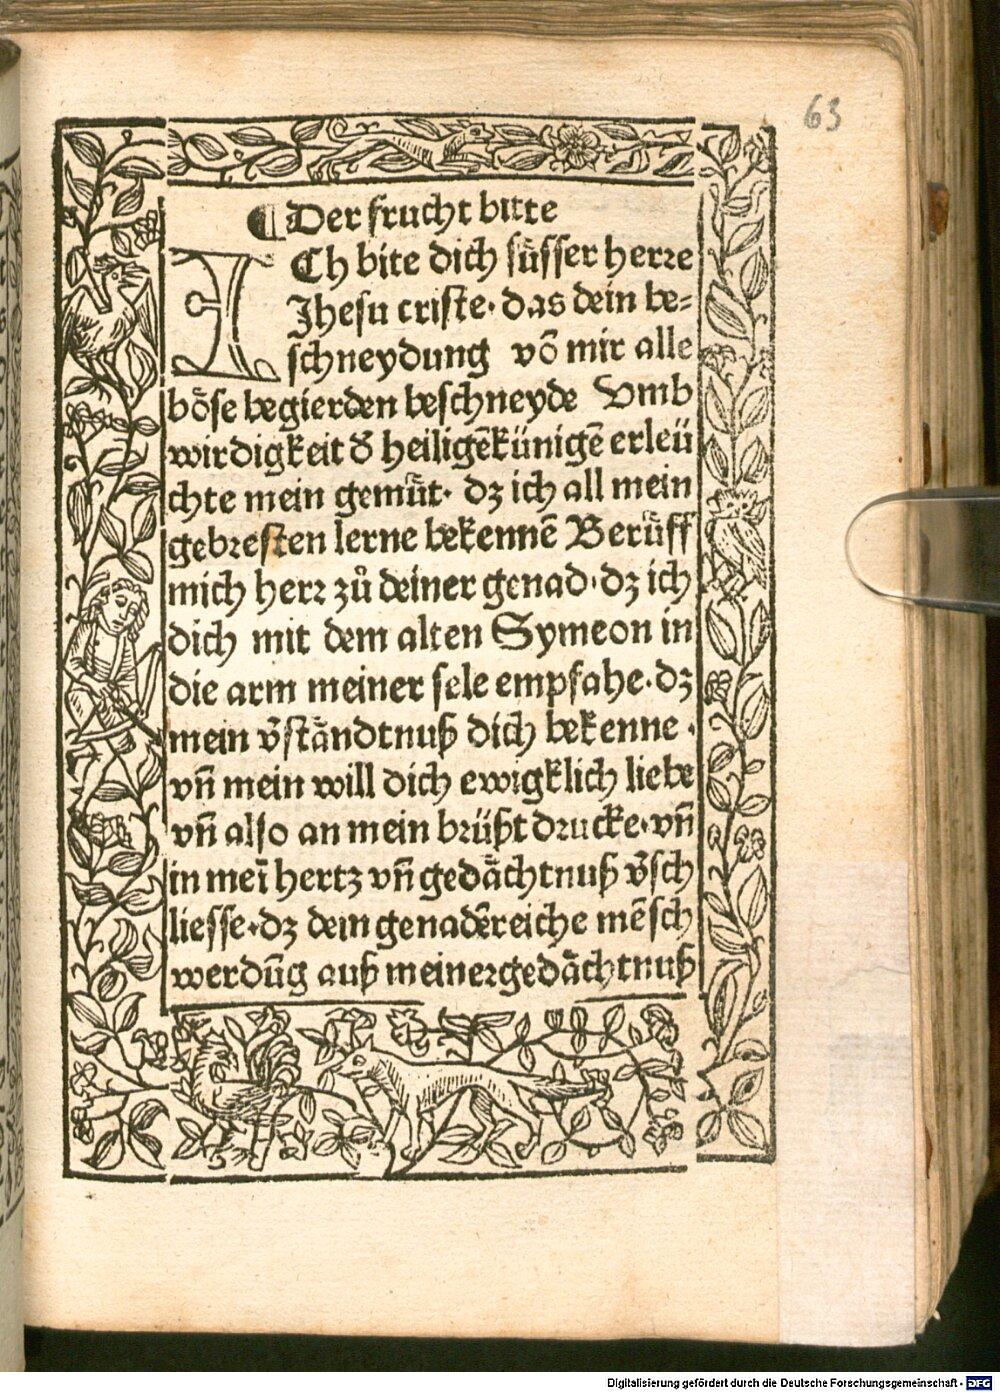 63
¶Der frucht bitte
ICh bite dich süsser herre
Jhesu criste· das dein be⸗
schneydung võ mir alle
böse begierden beschneyde Vmb
wirdigkeit d̄ heiligēkünigē erleü
chte mein gemüt· dz ich all mein
gebresten lerne bekennē Berüff
mich herr zů deiner genad· dz ich
dich mit dem alten Symeon in
die arm meiner sele empfahe· dz
mein v̄ständtnuß dich bekenne ·
vñ mein will dich ewigklich liebe
vñ also an mein brüßt drucke· vñ
in meī hertz vñ gedächtnuß v̄sch
liesse· dz dein genadēreiche mēsch
werdūg auß meinergedächtnuß
Digitalisierung gefördert durch die Deutsche Forschungsgemeinschaft - DFG